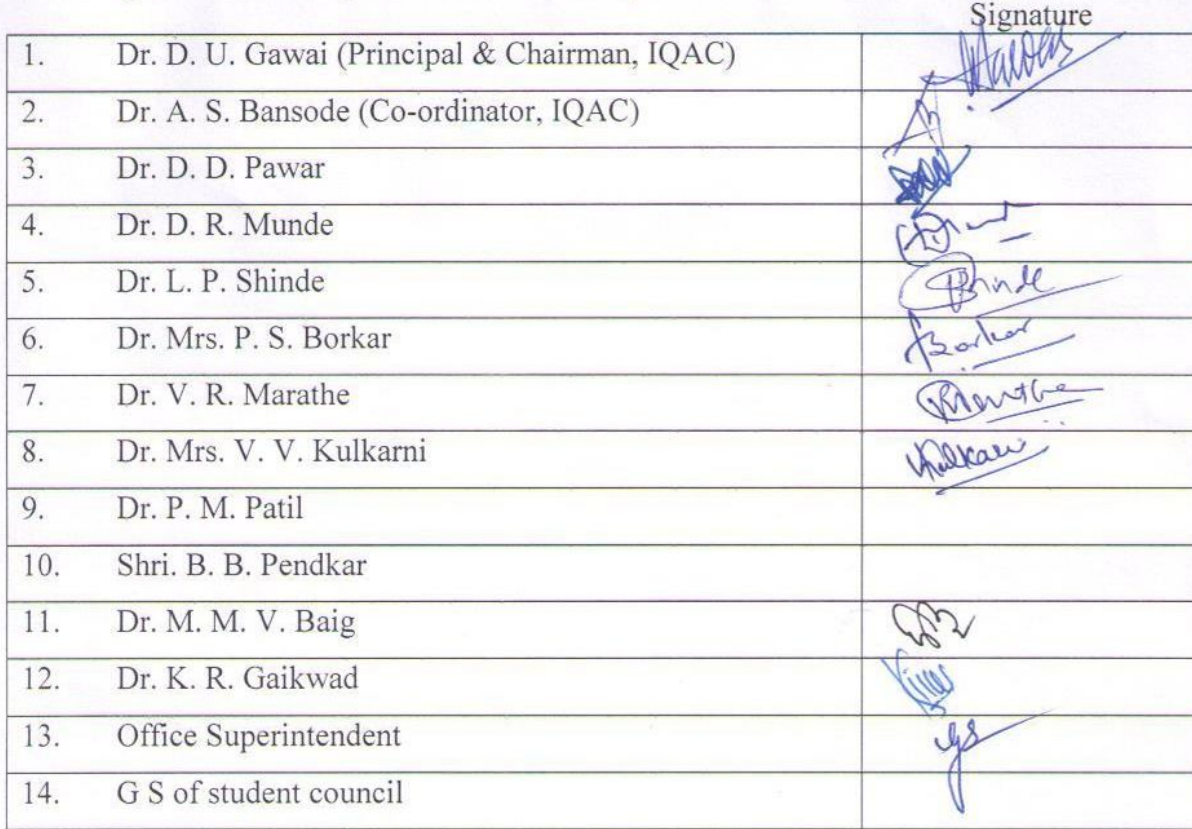 Signature
1. Dr. D. U. Gawai (Principal & Chairman, IQAC)
2. Dr. A. S. Bansode (Co-ordinator, IQAC)
3. Dr. D. D. Pawar
4. Dr. D. R. Munde
5. Dr. L. P. Shinde Shinde
6. Dr. Mrs. P. S. Borkar Borkar
7. Dr. V. R. Marathe
8. Dr. Mrs. V. V. Kulkarni
9. Dr. P. M. Patil
10. Shri. B. B. Pendkar
11. Dr. M. M. V. Baig
12. Dr. K. R. Gaikwad
13. Office Superintendent
14. G S of student council